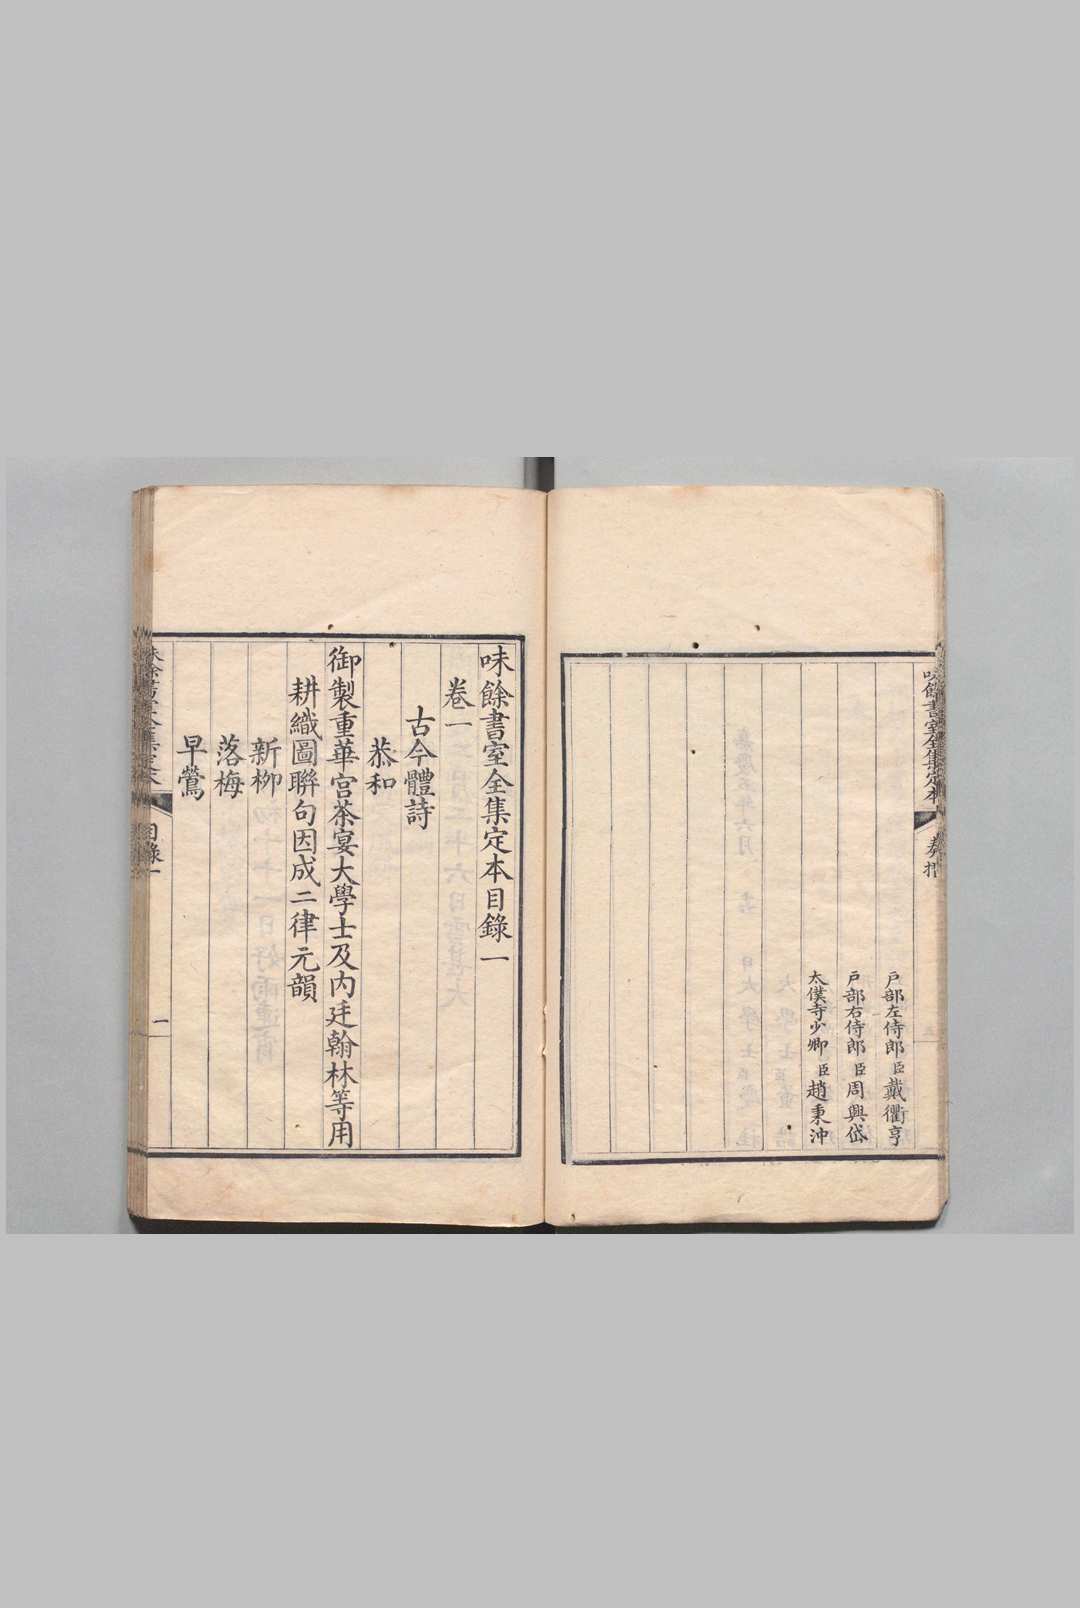 味餘書室全集定本
奏摺
戶部左侍郎臣戴衢亨
戶部右侍郎臣周興岱
太僕寺少卿臣趙秉沖
味餘書室全集定本目錄一
卷一
古今體詩
恭和
御製重華宮茶宴大學士及內廷翰林等用
耕織圖聯句因成二律元韻
新柳
落梅
早鶯
味餘書室全集定本
目錄一
一